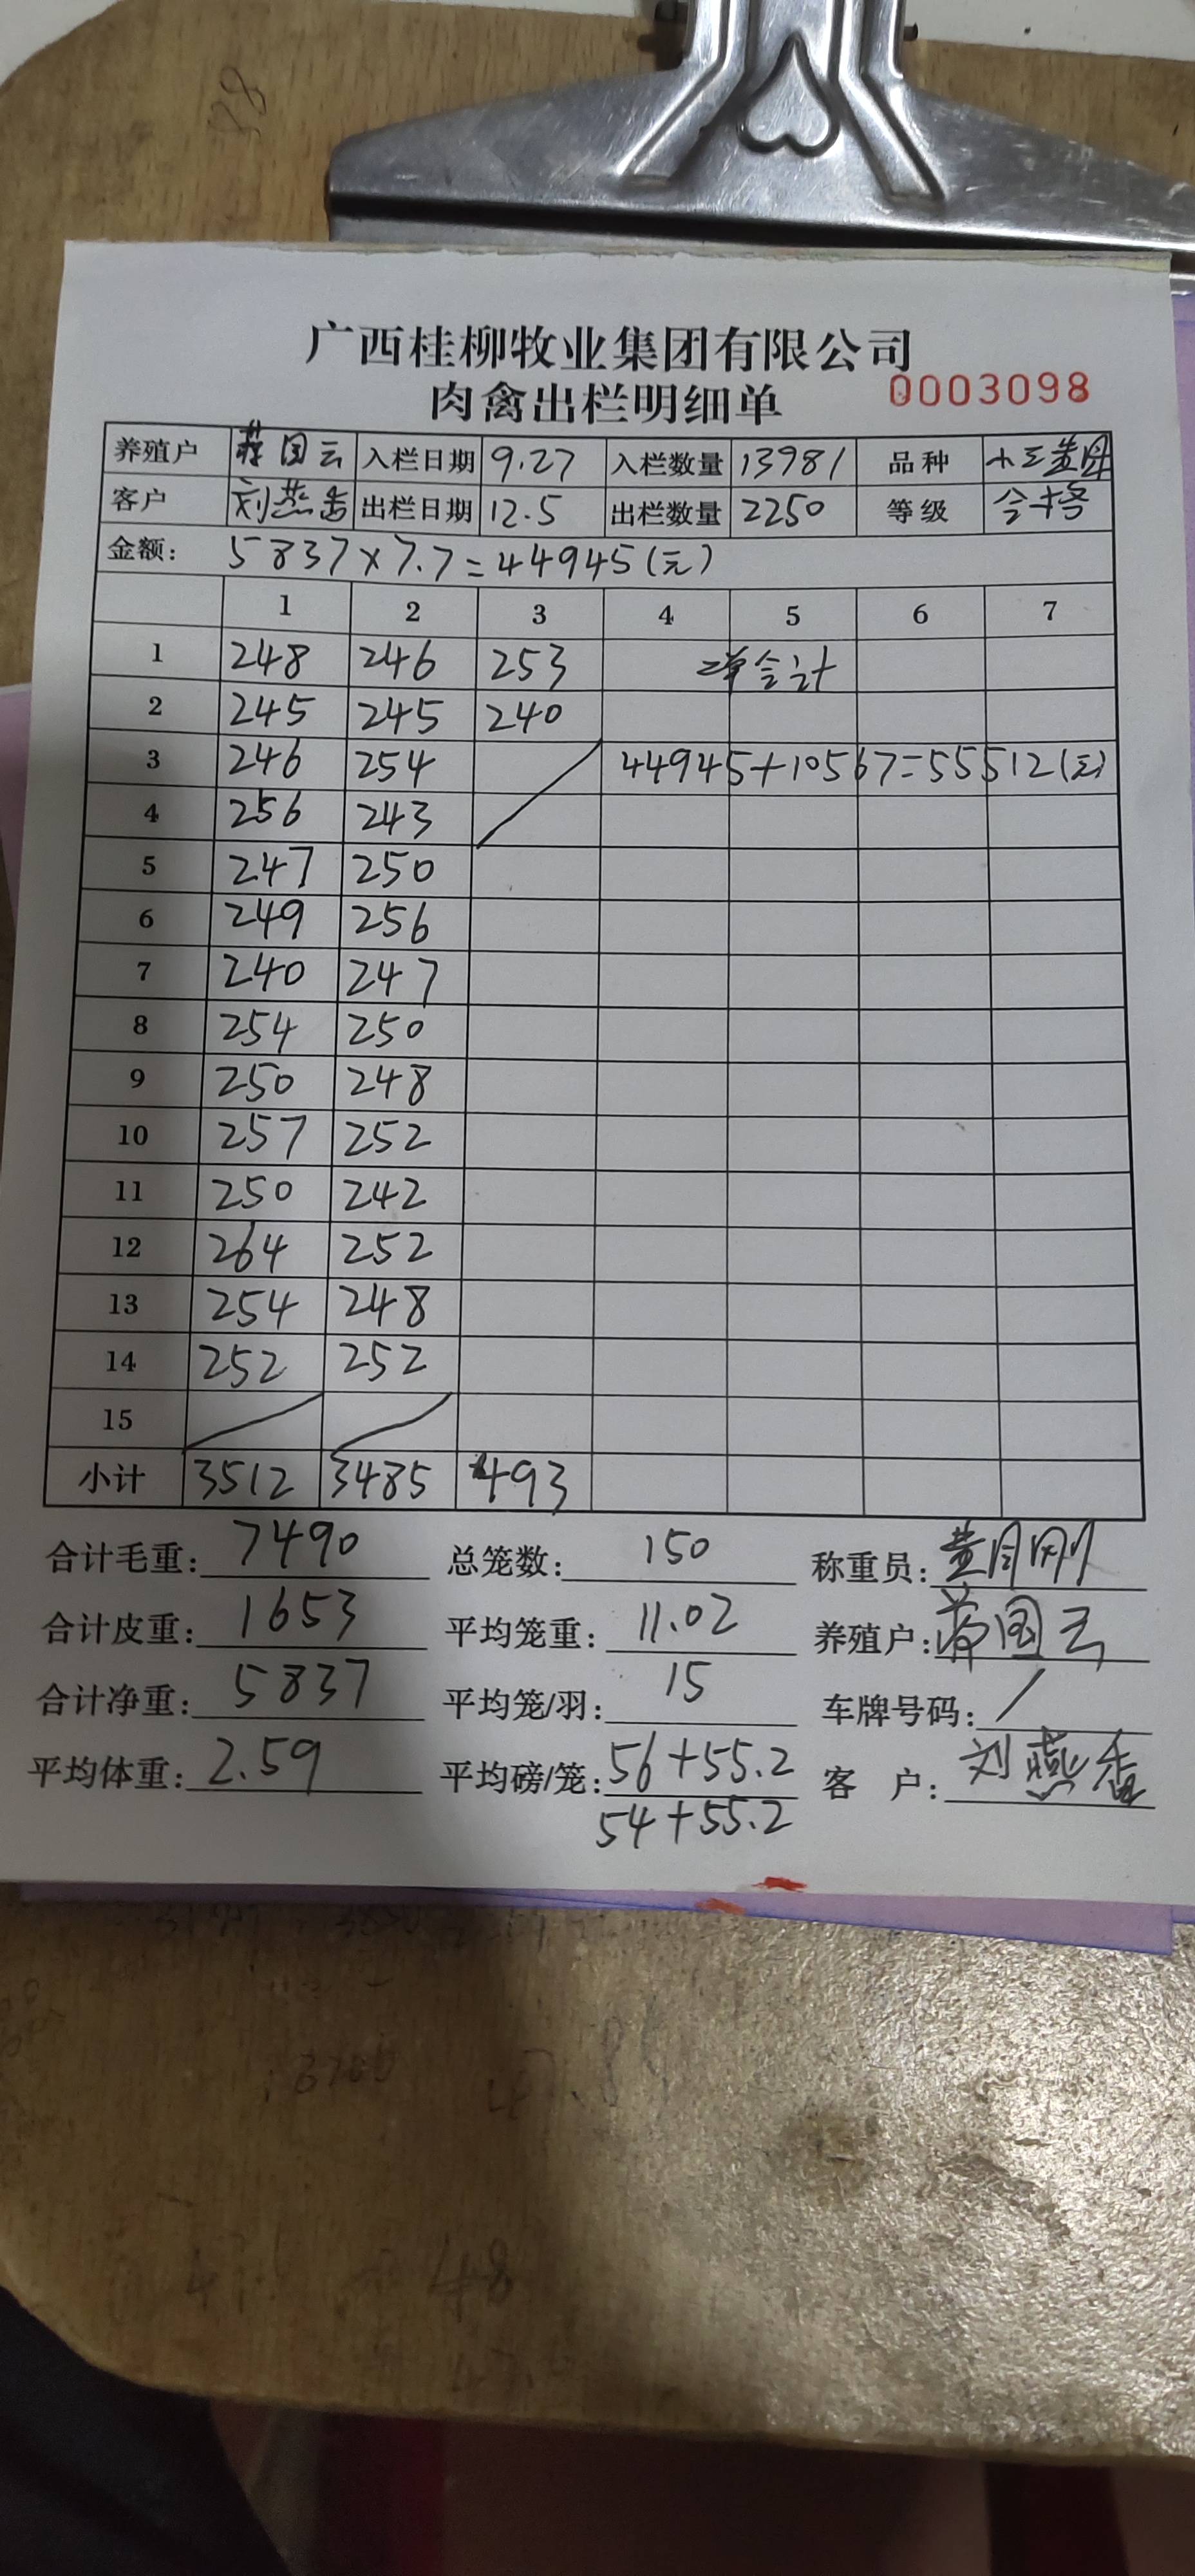 广西桂柳牧业集团有限公司
肉禽出栏明细单 0003098
养殖户 蒋国云 入栏日期 9.27 入栏数量 13981 品种 小三黄
客户 刘燕香 出栏日期 12.5 出栏数量 2250 等级 合格
金额: 5837×7.7=44945(元)
1 2 3 4 5 6 7
1 248 246 253 2单合计
2 245 245 240
3 246 254 44945+10567=55512(元)
4 256 243
5 247 250
6 249 256
7 240 247
8 254 250
9 250 248
10 257 252
11 250 242
12 264 252
13 254 248
14 252 252
15
小计 3512 3485 493
合计毛重: 7490 总笼数: 150 称重员:
合计皮重: 1653 平均笼重: 11.02 养殖户: 蒋国云
合计净重: 5837 平均笼/羽: 15 车牌号码: /
平均体重: 2.59 平均磅/笼: 56+55.2 客 户: 刘燕香
54+55.2
48